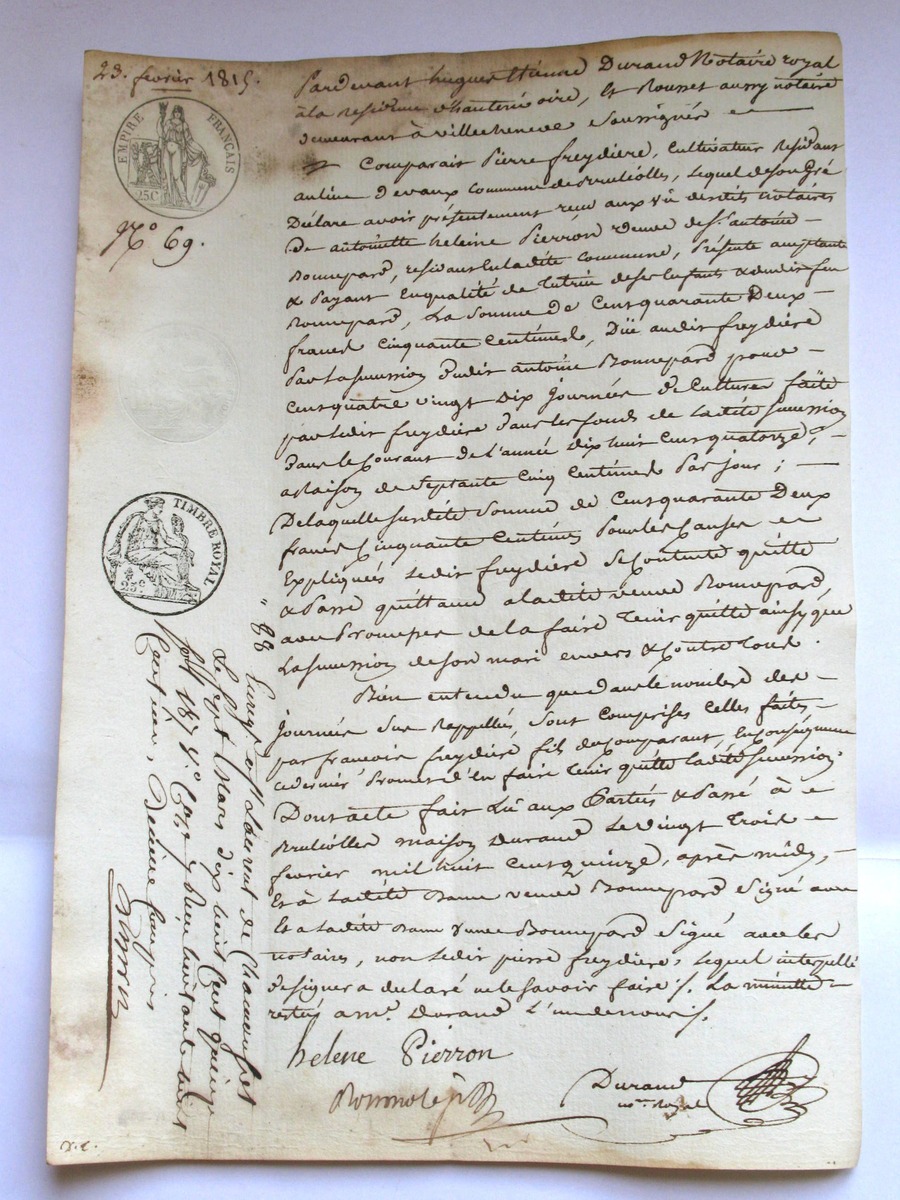 23. fevrier 1815.
EMPIRE FRANÇAIS
25C
No 69.
TIMBRE ROYAL
25c
Pardevant hugues Etienne Durand Notaire royal
à la Residence d'hauterivoire, Et Rousset aussy notaire
demeurant à villecheneve Soussignés
Comparait Pierre freydière, Cultivateur Residant
au lieu devaux Commune de Brulliolles, lequel de son Gré
Déclare avoir présentement reçu aux vû desdits notaires
de antoinette heleine Pierron veuve de Sr. antoine
Bonnepard, residant en ladite commune, Présente acceptante
& Payant En qualité de Tutrice de ses Enfants & dudit feu
Bonnepard, La Somme de Cent quarante Deux
francs Cinquante Centimes, Düe audit freydière
Par la succession dudit antoine Bonnepard pour
Cent quatre vingt dix journées de Cultures faite
par ledit freydière dans les fonds de ladite succession
dans le Courant de l'année dix huit Cent quatorze,
a Raison de Septante Cinq Centimes Par jour ;
De laquelle susdite Somme de Cent quarante Deux
francs Cinquante Centimes Pour les Causes
Expliquées ledit freydière Se Contente quitte
& Passe quittance a ladite veuve Bonnepard,
avec Promesse de la faire Tenir quitte ainsy que
La succession de son mari envers & Contre tous.
Bien entendu que dans le nombre des
journées Sus Rappellés, sont comprises celles faites
par francois freydière fils du Comparant, En Conséquence
ce dernier Promet d'en faire Tenir quitte ladite Succession.
Dont acte fait Lu aux Parties & Passé à
Brulliolles maison Durand Le vingt Trois
fevrier mil huit Cent quinze, après midy,
Et à ladite Dame veuve Bonnepard Signé avec
Et a ladite Dame veuve Bonnepard Signé avec les
notaires, non ledit pierre freydière, lequel interpellé
de signer a declaré ne le savoir faire ./. La minutte
restée a Me. Durand L'un de nous ./.
helene Pierron
Durand
no.re Royal
Enregé. a St. Laurent de Chamousset
Le Sept Mars dix huit Cent quinze
folio 187 Vo. Case
Centimes, Dixième Compris